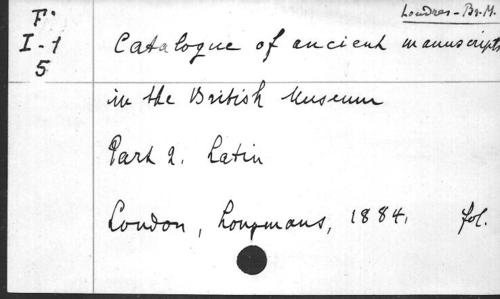 Londres - Br. M.
F·
I - 1
5
Catalogue of ancient manuscripts
in the British Museum
Part 2. Latin
London, Longmans, 1884. fol.